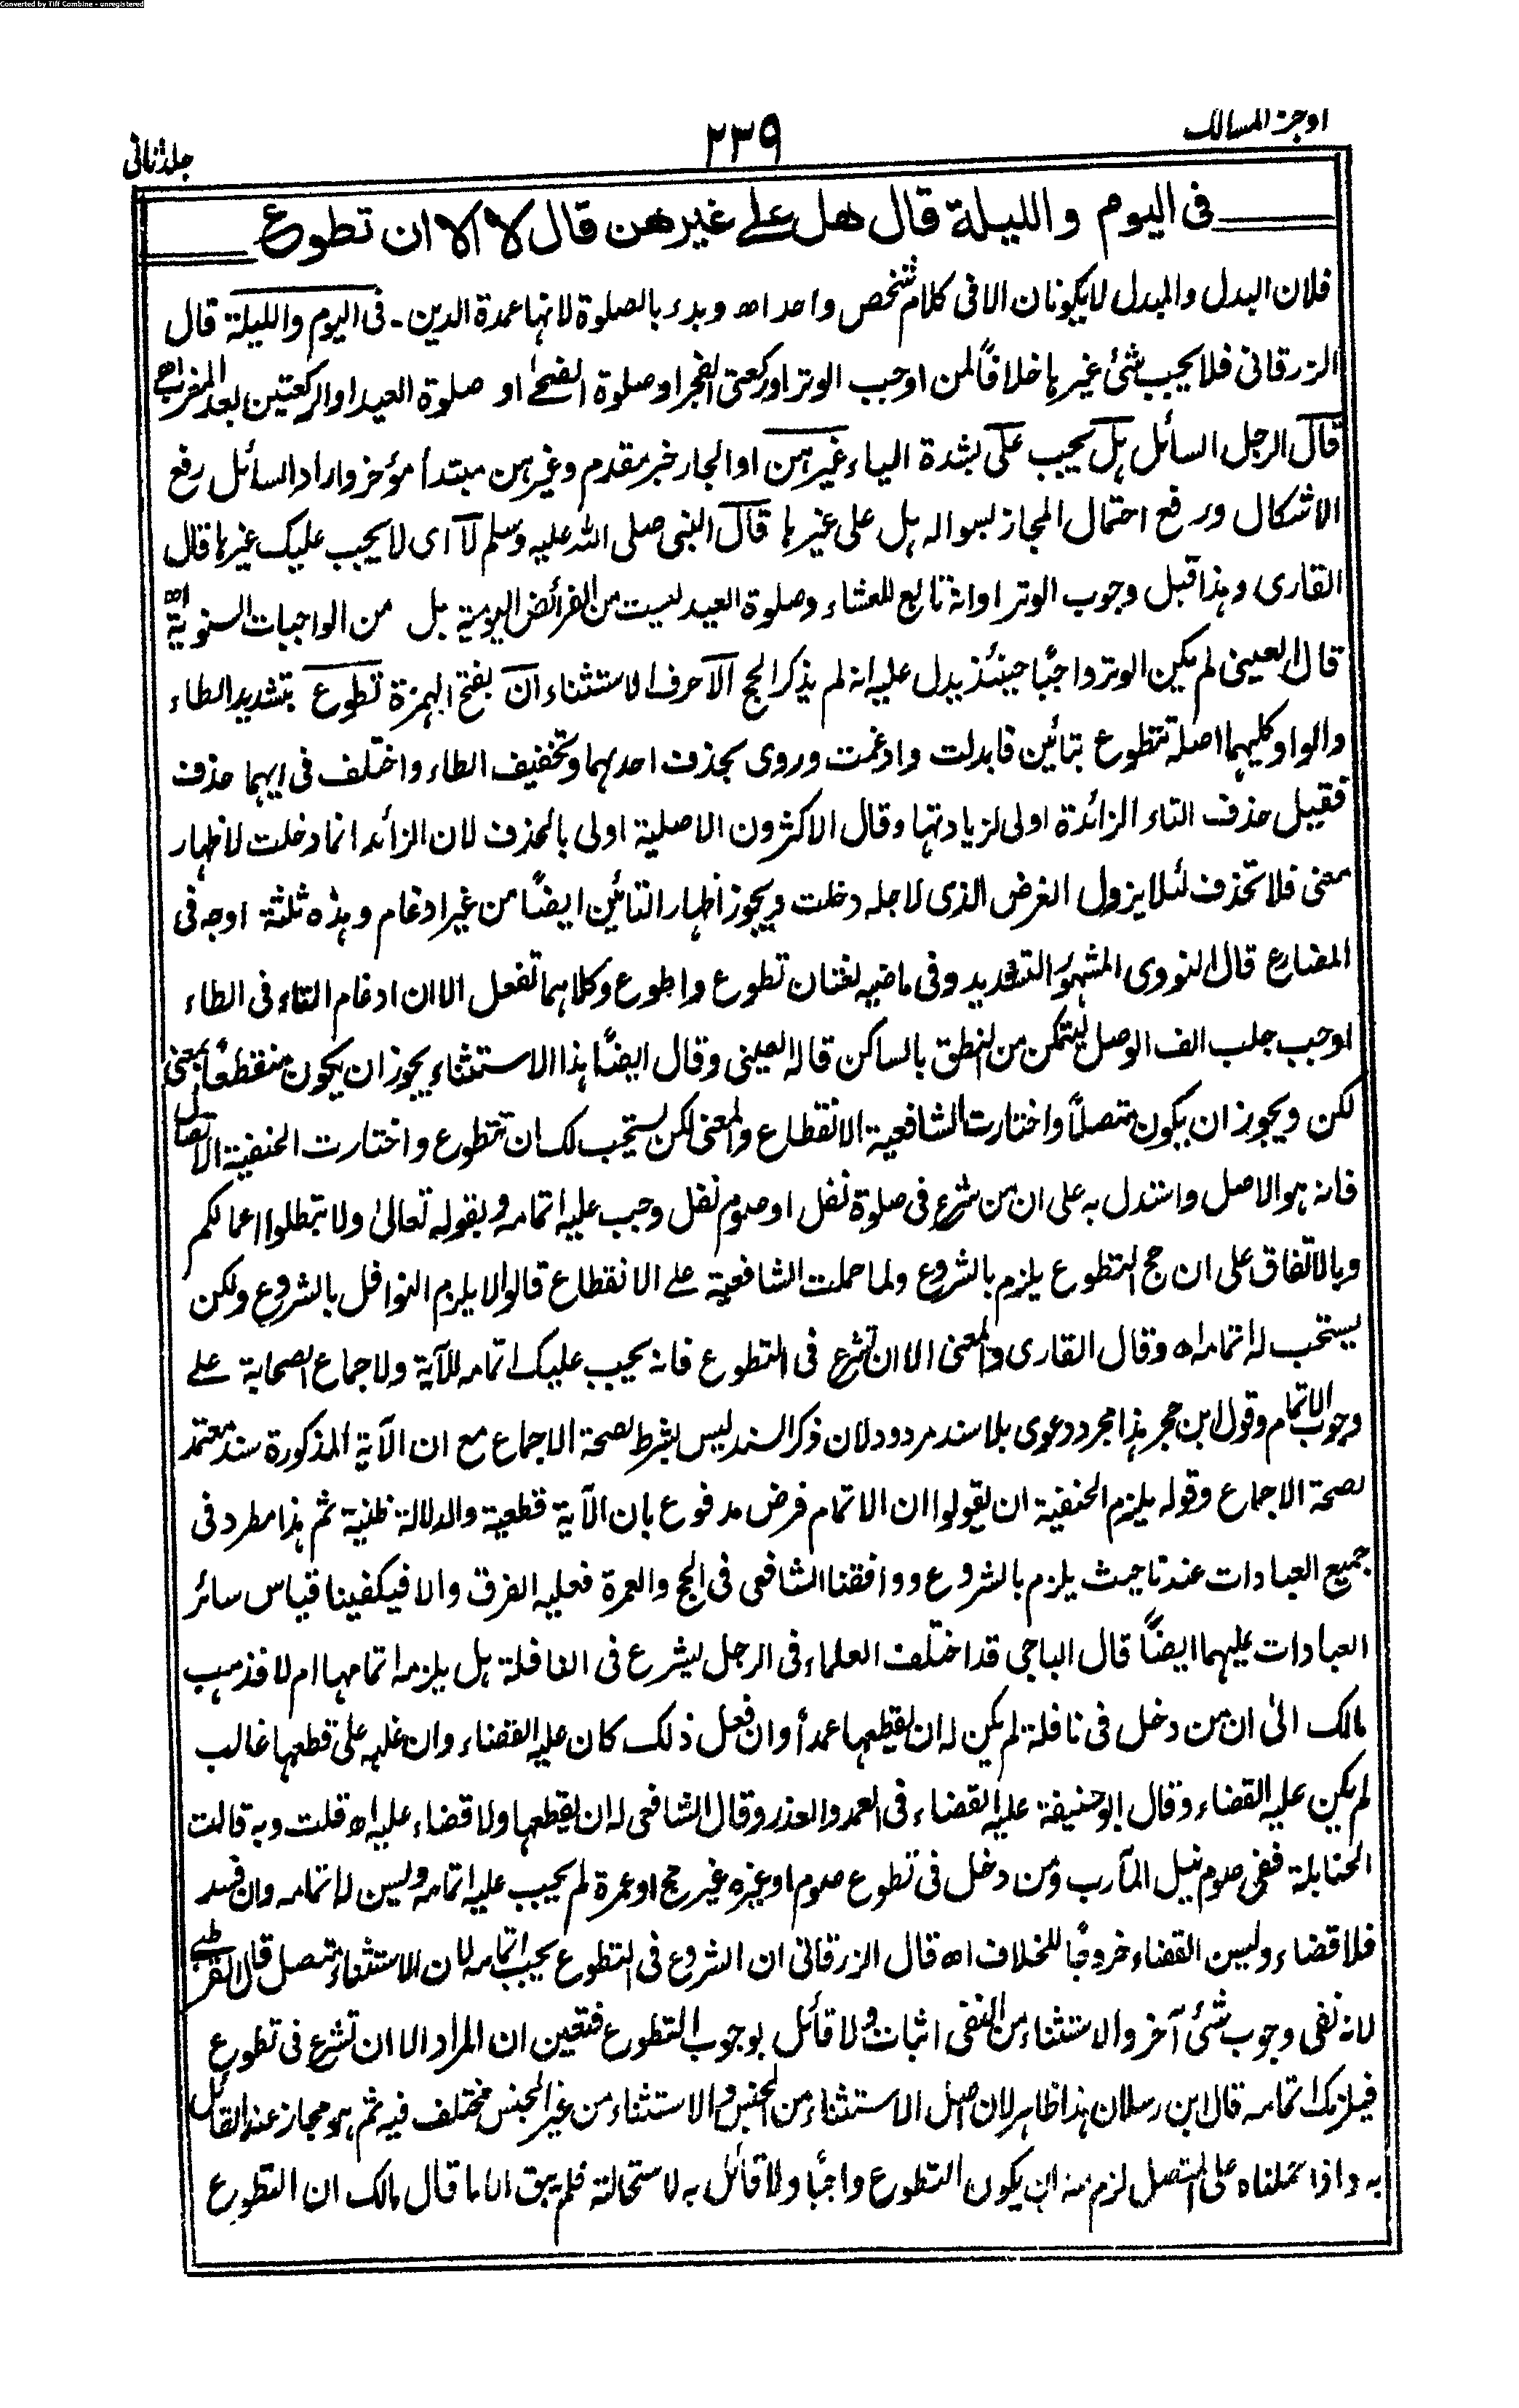 Converted by Tiff Combine - unregistered
اوجز المسالك
٢٣٩
جلد ثانى
فى اليوم والليلة قال هل على غيرهن قال لا الا ان تطوع
فلان البدل والمبدل لا يكونان الا فى كلام شخص واحد اھ وبدء بالصلوة لانها عمدة الدين۔ فى اليوم والليلة قال
الزرقانى فلا يجب شئ غيرها خلافًا لمن اوجب الوتر او ركعتى الفجر او صلوة الضحىٰ او صلوة العيد او الركعتين بعد المغرب اھ
قال الرجل السائل هل يجب علىَّ بشدة الياء غيرهن او الجار خبر مقدم وغيرهن مبتدأ مؤخر واراد السائل رفع
الاشكال ورفع احتمال المجاز بسواله هل على غيرها قال النبى صلى الله عليه وسلم لا اى لا يجب عليك غيرها قال
القارى وهذا قبل وجوب الوتر او انه تابع للعشاء وصلوة العيد ليست من الفرائض اليومية بل من الواجبات السنوية اھ
قال العينى لم يكن الوتر واجبًا حينئذ يدل عليه انه لم يذكر الحج الا حرف الاستثناء ان بفتح الهمزة تطوع بتشديد الطاء
والواو كليهما اصله تتطوع بتائين فابدلت وادغمت وروى بحذف احدهما وتخفيف الطاء واختلف فى ايهما حذف
فقيل حذف التاء الزائدة اولى لزيادتها وقال الاكثرون الاصلية اولى بالحذف لان الزائد انما دخلت لاظهار
معنى فلا تحذف لئلا يزول الغرض الذى لاجله دخلت ويجوز اظهار التائين ايضًا من غير ادغام وهذه ثلثة اوجه فى
المضارع قال النووى المشهور التشديد وفى ماضيه لغتان تطوع واطوع وكلاهما تفعل الا ان ادغام التاء فى الطاء
اوجب جلب الف الوصل ليتمكن من النطق بالساكن قاله العينى وقال ايضًا هذا الاستثناء يجوز ان يكون منقطعًا بمعنى
لكن ويجوز ان يكون متصلًا واختارت الشافعية الانقطاع والمعنى لكن يستحب لك ان تتطوع واختارت الحنفية الاتصال
فانه هو الاصل واستدل به على ان من شرع فى صلوة نفل او صوم نفل وجب عليه اتمامه وبقوله تعالىٰ ولا تبطلوا اعمالكم
وبالاتفاق على ان حج التطوع يلزم بالشروع ولما حملت الشافعية على الانقطاع قالوا لا يلزم النوافل بالشروع ولكن
يستحب له اتمامه اھ وقال القارى والمعنى الا ان تشرع فى التطوع فانه يجب عليك اتمامه للآية ولاجماع الصحابة على
وجوب الاتمام وقول ابن حجر هذا مجرد دعوى بلا سند مردود لان ذكر السند ليس بشرط لصحة الاجماع مع ان الآية المذكورة سند معتمد
لصحة الاجماع وقوله يلزم الحنفية ان يقولوا ان الاتمام فرض مدفوع بان الآية قطعية والدلالة ظنية ثم هذا مطرد فى
جميع العبادات عندنا حيث يلزم بالشروع ووافقنا الشافعى فى الحج والعمرة فعليه الفرق والا فيكفينا قياس سائر
العبادات عليهما ايضًا قال الباجى قد اختلف العلماء فى الرجل يشرع فى النافلة هل يلزمه اتمامها ام لا فذهب
مالك الىٰ ان من دخل فى نافلة لم يكن له ان يقطعها عمدًا وان فعل ذلك كان عليه القضاء وان غلبه على قطعها غالب
لم يكن عليه القضاء وقال ابو حنيفة عليه القضاء فى العمد والعذر وقال الشافعى له ان يقطعها ولا قضاء عليه اھ قلت وبه قالت
الحنابلة ففى صوم نيل المآرب ومن دخل فى تطوع صوم او غيره غير حج او عمرة لم يجب عليه اتمامه ويسن له اتمامه وان فسد
فلا قضاء ويسن القضاء خروجًا للخلاف اھ قال الزرقانى ان الشروع فى التطوع يجب اتمامه لان الاستثناء متصل قال القرطبى
لانه نفى وجوب شئ آخر والاستثناء من النفى اثبات ولا قائل بوجوب التطوع فتعين ان المراد الا ان تشرع فى تطوع
فيلزمك اتمامه قال ابن رسلان هذا ظاهر لان اصل الاستثناء من الجنس والاستثناء من غير الجنس مختلف فيه ثم هو مجاز عند القائل
به واذا حملناه على المتصل لزم منه ان يكون التطوع واجبًا ولا قائل به لاستحالته فلم يبق الا ما قال مالك ان التطوع